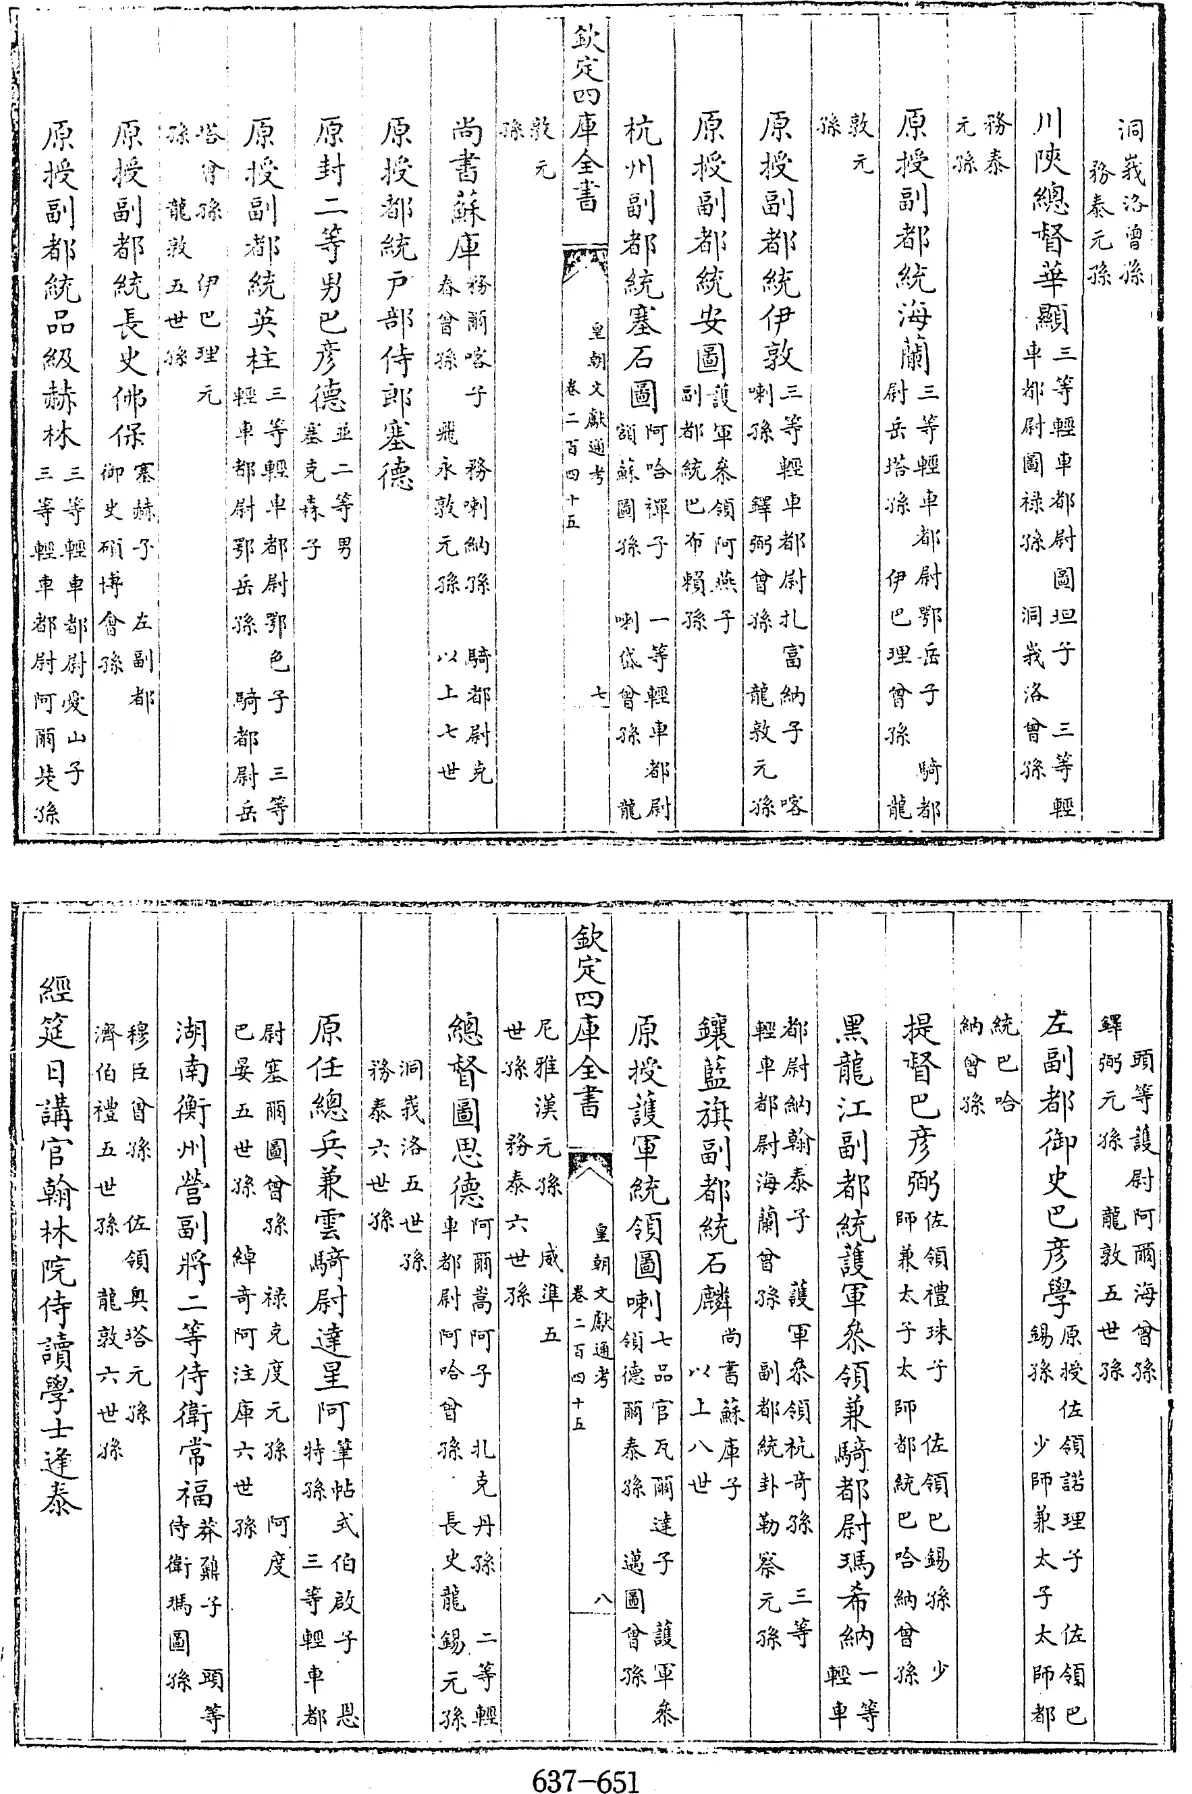 洞峩洛曾孫
務泰元孫
川陝總督華顯三等輕車都尉圖坦子 三等輕
車都尉圖祿孫 洞峩洛曾孫
務泰
元孫
原授副都統海蘭三等輕車都尉鄂岳子 騎都
尉岳塔孫 伊巴理曾孫 龍
敦元
孫
原授副都統伊敦三等輕車都尉扎富納子 喀
喇孫 鐸弼曾孫 龍敦元孫
原授副都統安圖護軍叅領阿燕子
副都統巴布賴孫
杭州副都統塞石圖阿哈禪子 一等輕車都尉
額蘇圖孫 喇岱曾孫 龍
欽定四庫全書 皇朝文獻通考
卷二百四十五 七
敦元
孫
尚書蘇庫務爾喀子 務喇納孫 騎都尉克
春曾孫 飛永敦元孫 以上七世
原授都統戶部侍郎塞德
原封二等男巴彥德並二等男
塞克森子
原授副都統英柱三等輕車都尉鄂色子 三等
輕車都尉鄂岳孫 騎都尉岳
塔曾孫 伊巴理元
孫 龍敦五世孫
原授副都統長史佛保塞赫子 左副都
御史碩博會孫
原授副都統品級赫林三等輕車都尉愛山子
三等輕車都尉阿爾孫
頭等護尉阿爾海曾孫
鐸弼元孫 龍敦五世孫
左副都御史巴彥學原授佐領諾理子 佐領巴
錫孫 少師兼太子太師都
統巴哈
納曾孫
提督巴彥弼佐領禮珠子 佐領巴錫孫 少
師兼太子太師都統巴哈納曾孫
黑龍江副都統護軍叅領兼騎都尉瑪希納一等
輕車
都尉納翰泰子 護軍叅領杭奇孫 三等
輕車都尉海蘭曾孫 副都統卦勒察元孫
鑲藍旗副都統石麟尚書蘇庫子
以上八世
原授護軍統領圖喇七品官瓦爾達子 護軍叅
領德爾泰孫 邁圖曾孫
欽定四庫全書 皇朝文獻通考
卷二百四十五 八
尼雅漢元孫 威準五
世孫 務泰六世孫
總督圖思德阿爾嵩阿子 扎克丹孫 二等輕
車都尉阿哈曾孫 長史龍錫元孫
洞峩洛五世孫
務泰六世孫
原任總兵兼雲騎尉達呈阿筆帖式伯啟子 恩
特孫 三等輕車都
尉塞爾圖曾孫 祿克度元孫 阿度
巴晏五世孫 綽奇阿注庫六世孫
湖南衡州營副將二等侍衛常福莽鼐子 頭等
侍衛瑪圖孫
穆臣曾孫 佐領奧塔元孫
濟伯禮五世孫 龍敦六世孫
經筵日講官翰林院侍讀學士逢泰
637-651